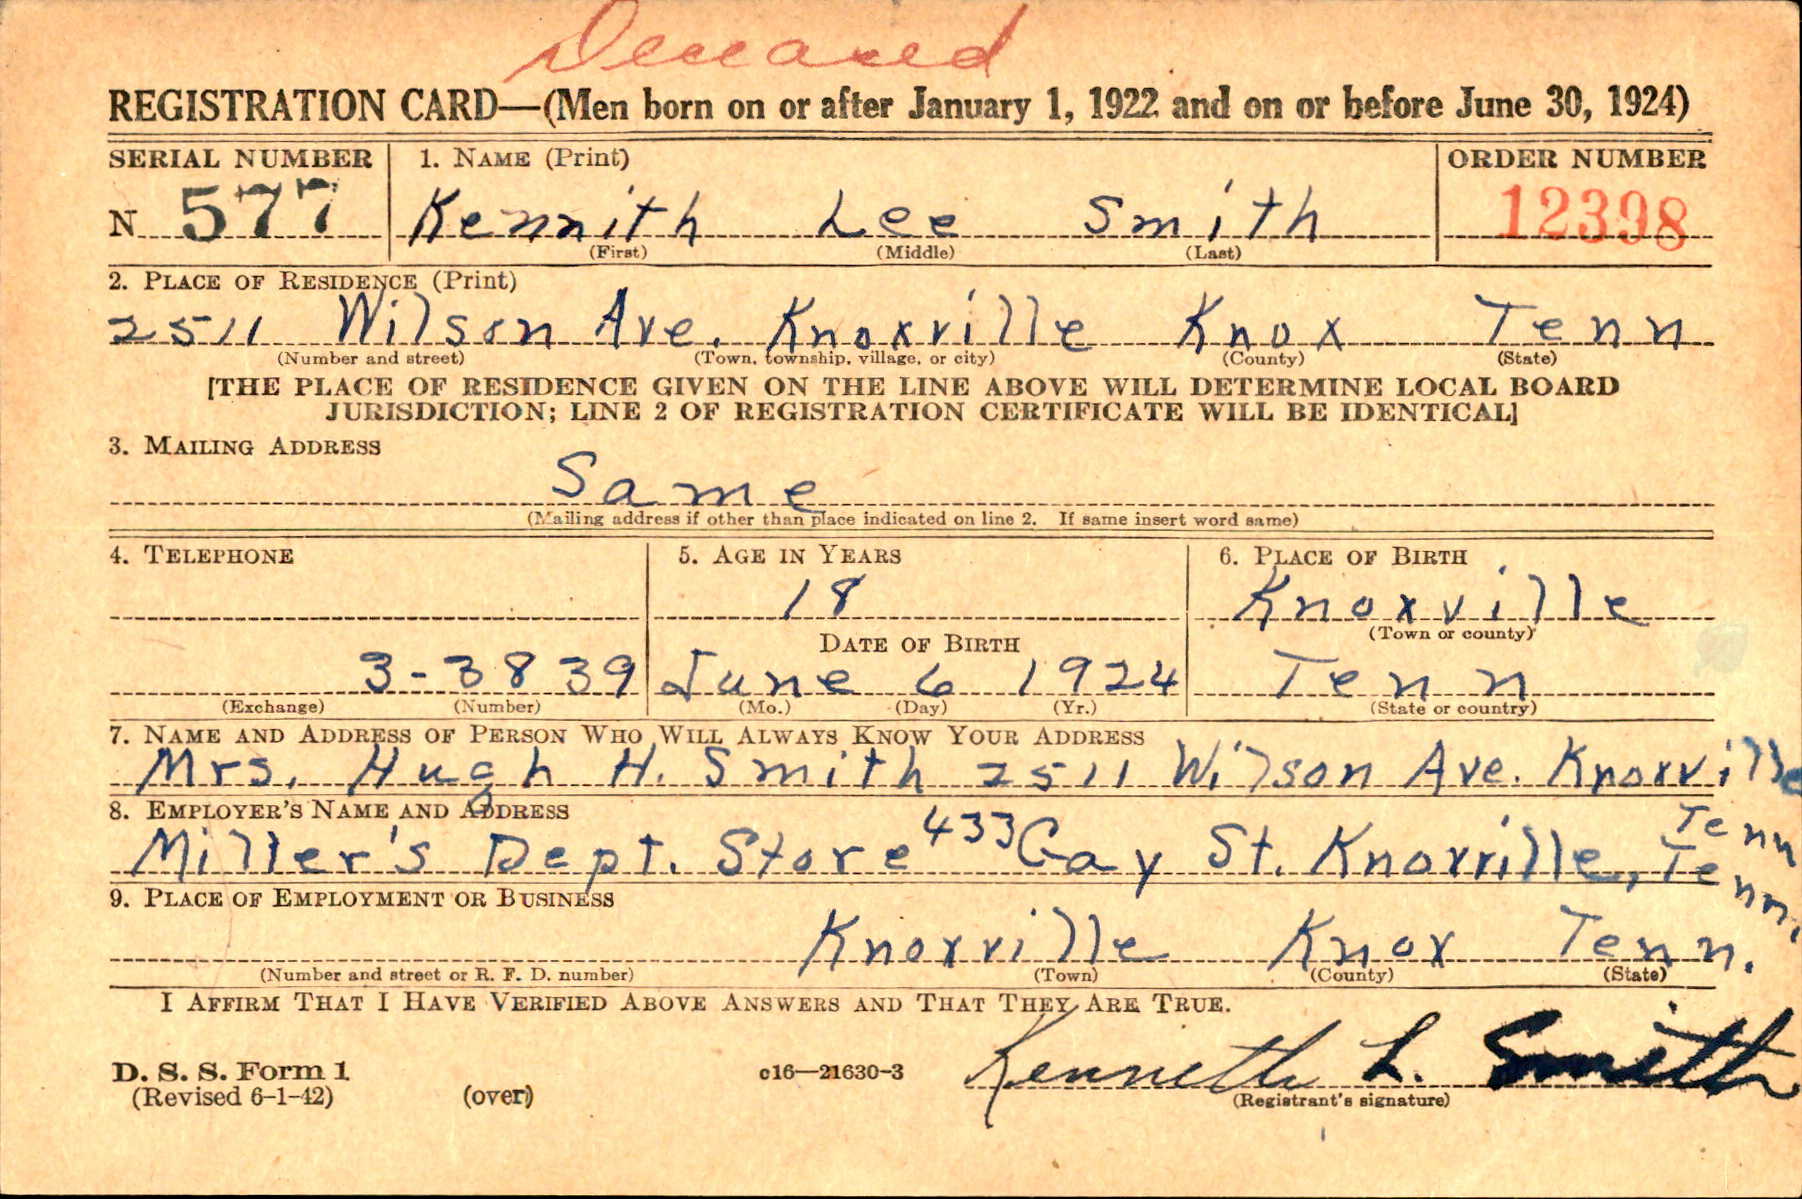 Deceased
REGISTRATION CARD—(Men born on or after January 1, 1922 and on or before June 30, 1924)
SERIAL NUMBER 1. NAME (Print) ORDER NUMBER
N 577 Kennith Lee Smith 12398
(First) (Middle) (Last)
2. PLACE OF RESIDENCE (Print)
2511 Wilson Ave. Knoxville Knox Tenn
(Number and street) (Town, township, village, or city) (County) (State)
[THE PLACE OF RESIDENCE GIVEN ON THE LINE ABOVE WILL DETERMINE LOCAL BOARD
JURISDICTION; LINE 2 OF REGISTRATION CERTIFICATE WILL BE IDENTICAL]
3. MAILING ADDRESS
Same
(Mailing address if other than place indicated on line 2. If same insert word same)
4. TELEPHONE 5. AGE IN YEARS 6. PLACE OF BIRTH
18 Knoxville
DATE OF BIRTH (Town or county)
3-3839 June 6 1924 Tenn
(Exchange) (Number) (Mo.) (Day) (Yr.) (State or country)
7. NAME AND ADDRESS OF PERSON WHO WILL ALWAYS KNOW YOUR ADDRESS
Mrs. Hugh H. Smith 2511 Wilson Ave. Knoxville
Tenn
8. EMPLOYER'S NAME AND ADDRESS
Miller's Dept. Store 433 Gay St. Knoxville, Tenn.
9. PLACE OF EMPLOYMENT OR BUSINESS
Knoxville Knox Tenn.
(Number and street or R. F. D. number) (Town) (County) (State)
I AFFIRM THAT I HAVE VERIFIED ABOVE ANSWERS AND THAT THEY ARE TRUE.
D. S. S. Form 1 c16—21630-3 Kenneth L. Smith
(Revised 6-1-42) (over) (Registrant's signature)